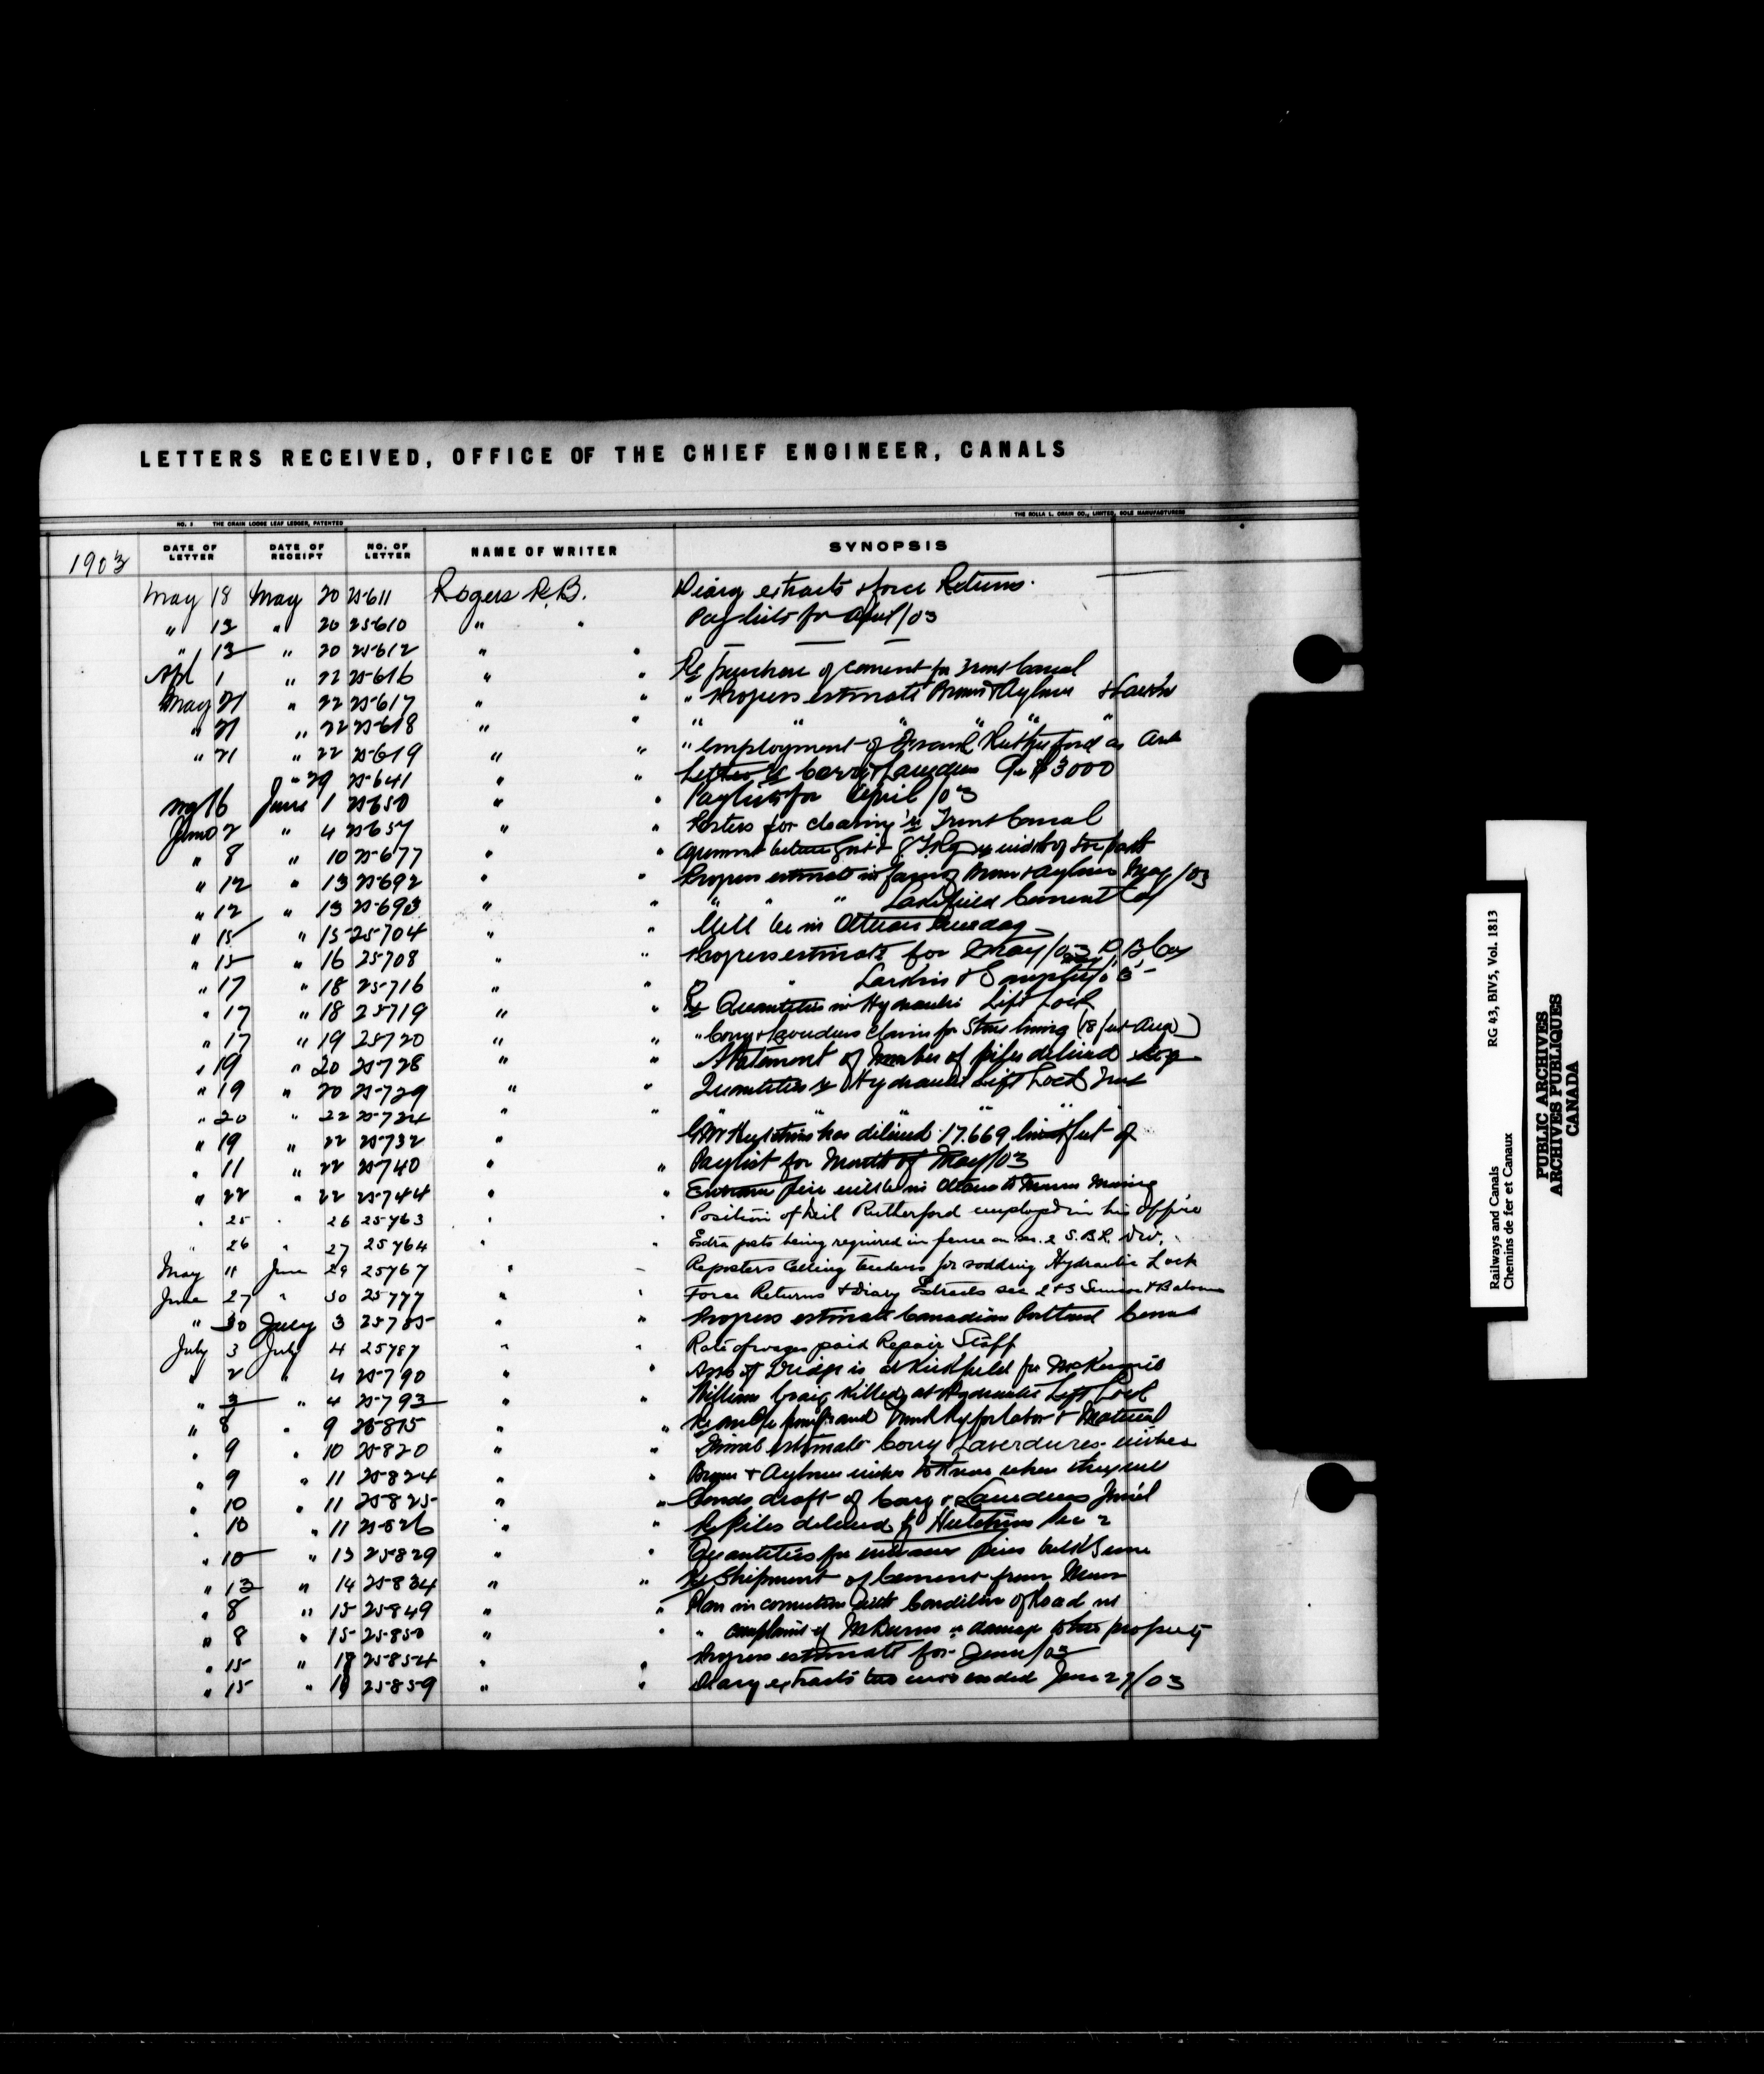 LETTERS RECEIVED, OFFICE OF THE CHIEF ENGINEER, CANALS
NO. 1 THE CRAIN LOOSE LEAF LEDGER, PATENTED THE ROLLA L. CRAIN CO., LIMITED, SOLE MANUFACTURERS
1903 DATE OF LETTER DATE OF RECEIPT NO. OF LETTER NAME OF WRITER SYNOPSIS
May 18 May 20 25611 Rogers R.B. Diary extracts & force Returns.
" 13 " 20 25610 " " Paylists for April/03
" 13 " 20 25612 " " — —
Apl 1 " 22 25616 " " Re purchase of cement for Trent Canal
May 21 " 22 25617 " " " Progress estimate Brown & Aylmer
" 21 " 22 25618 " " " " " " " "
" 21 " 22 25619 " " " employment of Rutherford as
" 29 25641 " " Corry & Laverdure $3000
May 16 June 1 25650 " " Paylists for April/03
June 2 " 4 25657 " " Posters for clearing re Trent Canal
" 8 " 10 25677 " " width of tow path
" 12 " 13 25692 " " Progress estimate in favor Brown & Aylmer May/03
" 12 " 13 25693 " " " " " Lakefield Cement Coy
" 15 " 15 25704 " " Will be in Ottawa Tuesday
" 15 " 16 25708 " " Progress estimate for May/03 D.B. Coy
" 17 " 18 25716 " " " " Larkin & Sangster
" 17 " 18 25719 " " Re Quantities in Hydraulic Lift Lock
" 17 " 19 25720 " " " Corry & Laverdures Claim for Stone lining
" 19 " 20 25728 " " Statement of Number of piles delivered
" 19 " 20 25729 " " Quantities re Hydraulic Lift Lock
" 20 " 22 25734 " " " " " "
" 19 " 22 25732 " has delivered 17.669 feet of
" 11 " 22 25740 " " Paylist for Month of May/03
" 22 " 22 25744 " " Entrance pier will be in Ottawa
" 25 " 26 25763 " " Position of Neil Rutherford employed in his office
" 26 " 27 25764 " " Extra posts being required in fence on sec. 2 S.B.L. Div.
May 11 June 29 25767 " " Re posters Calling tenders for sodding Hydraulic Lock
June 27 " 30 25777 " " Force Returns & Diary Extracts sec 2 & 3 Simcoe & Balsam
" 30 July 3 25785 " " Progress estimate Canadian Portland Cement
July 3 July 4 25787 " " Rate of wages paid Repair Staff
" 2 " 4 25790 " " of Bridge is at Kirkfield for McKenzie
" 3 " 4 25793 " " William Craig killed at Hydraulic Lift Lock
" 8 " 9 25815 " " Trunk Ry for labor & Material
" 9 " 10 25820 " " Final estimate Corry & Laverdures. wishes
" 9 " 11 25824 " " Brown & Aylmer wishes to know when they will
" 10 " 11 25825 " " Sends draft of Corry & Laverdures final
" 10 " 11 25826 " " Re piles delivered by Hutchins Sec 2
" 10 " 13 25829 " " Quantities for entrance piers
" 13 " 14 25834 " " Re Shipment of Cement from
" 8 " 15 25849 " " Plan in connection with Condition of Road
" 8 " 15 25850 " " " complaint of re damage to his property
" 15 " 18 25854 " " Progress estimate for June/03
" 15 " 19 25859 " " Diary extracts two ended June 27/03
Railways and Canals RG 43, BIV5, Vol. 1813
Chemins de fer et Canaux
PUBLIC ARCHIVES
ARCHIVES PUBLIQUES
CANADA